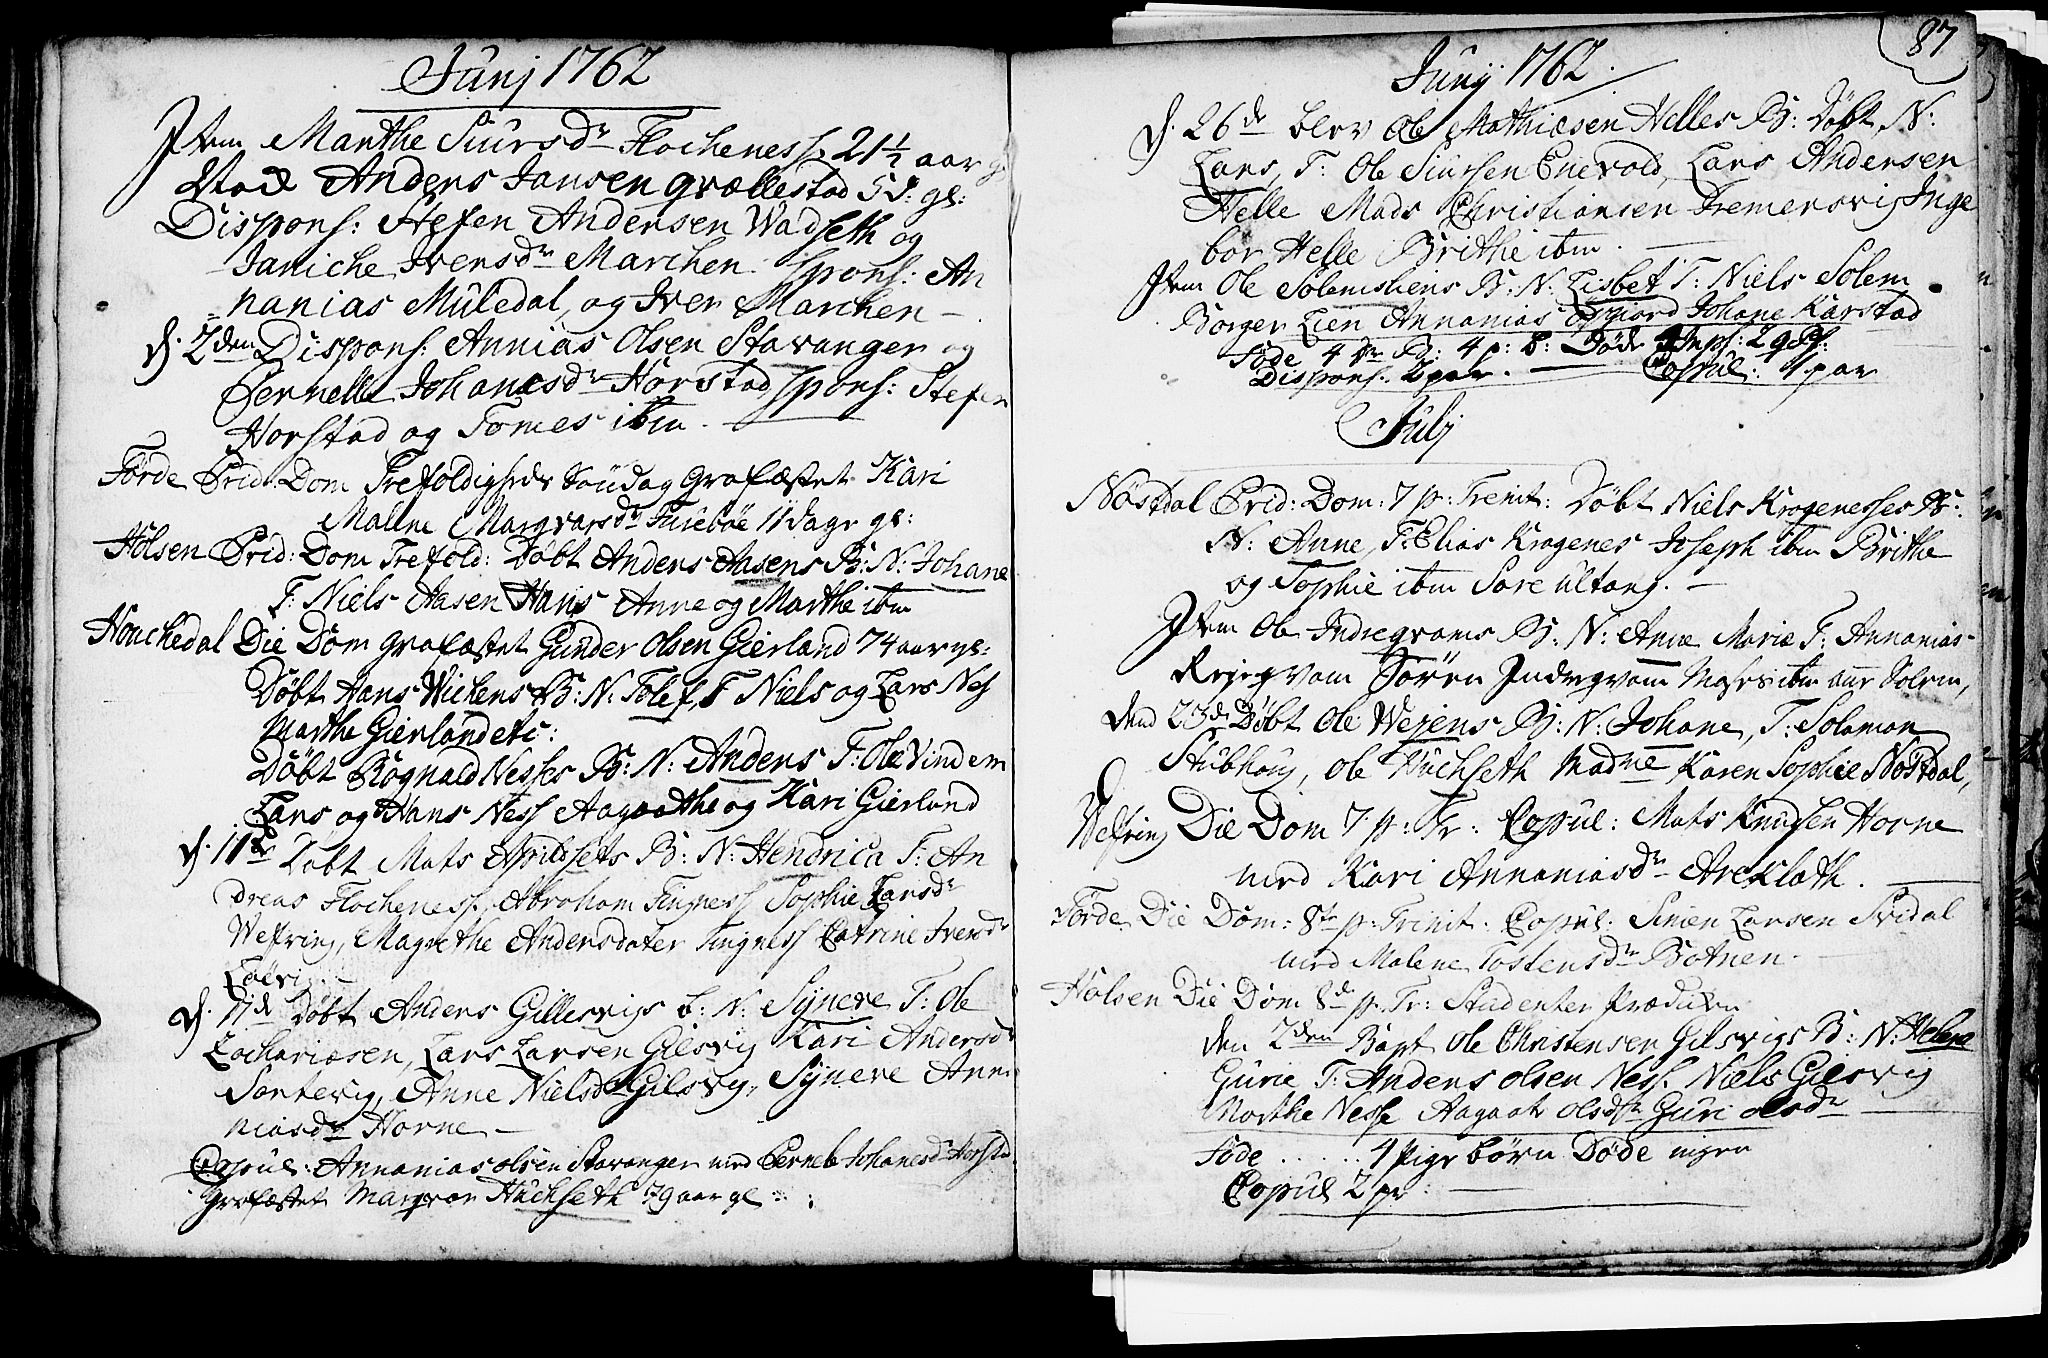 Junj 1762
Item Marthe Siursdr Flocheness. 21 1/2 aar g
Mad Anders Jansen grællestad 5 d: gl:
Dispons: Stefen Andersen Wadseth og
Janiche Iversdr Marchen spons: An
nanias Muledal, og Iver Marchen -
d. 2den Dispons: Annias Olsen Stavanger og
Pernelle Johanesdr Horstad spons: Stefen
Horstad og Tomes ibm.
Førde Prid: Dom Trefoldigheds Søndag Grafæstet Kari
Maline Margvarsdr Furebøe 11 dage gl:
Holsen Prid: Dom Trefold: Døbt Anders Aasens B: N: Johane
F: Niels Aasen Hans Anne og Marthe ibm
Houchedal Die Dom grafæstet Gunder Olsen Gierland 74 aar gl:
Døbt Hans Wichens B: N: Tolef, F Niels og Lars Nes
Marthe Gierland etc:
Døbt Rognald Nesses B: N: Anders F: Ole Vindem
Lars og Hans Ness Aagaathe og Kari Gierland
d. 11te Døbt Mats Apildsets B: N: Hendrica F: An
dreas Flochenes, Abraham Tingness Sophie Larsdr
Wefring, Magrethe Andersdater Tingness Catrine Iversdr
Løevig -
d. 17d Døbt Anders Gillesvigs b: N: Syneve F: Ole
Zachariæsen, Lars Larsen Gilsvig Kari Andersdr
Sortevig, Anne Nielsd Gilsvig, Syneve Anna
niasdr Horne -
Copul: Annanias Olsen Stavanger med Pernele Johanesdr Horstad
Grafæstet Margvar Huchseth 79 aar gl:
87
Junij 1762.
d. 26de blev Ole Mathiesen Helles B: Døbt N:
Lars, F: Ole Siursen Enevold, Lars Andersen
Helle Mads Christiansen Tremersvig Inge
bor Helle Brithe ibm.
Item Ole Solemsliens B: N: Lisbet F: Niels Solem
Børger Lien Annanias Øygiord Johane Karstad
Føde 4 B: 4 p: b: Døde 2
Dispons: 2 par. Copul: 1 par
Julj
Nøstdal Prid: Dom: 7 p: Trinit: Døbt Niels Krogenesses B:
N: Anne, F: Elias Krogenes Joseph ibm Brithe
og Sophie ibm Sare ultang. -
Item Ole Indregvams B: N: Anne Marie F: Annanias
Rejegvam Søren Indregvam Moses ibm Solem,
den 23d Døbt Ole Wejens B: N: Johane, F: Solamon
Stubhoug, Ole Huchseth Madme Karen Sophie Nøstdal,
Wefring Die Dom 7 p: Tr: Copul: Mats Knudsen Horne
med Kari Annaniasdr Areklæth.
Førde Die Dom: 8te p: Trinit: Copul: Simen Larsen Svidal
med Malene Tostensdr Botnen.
Holsen Die Dom 8d p: Tr: Studenter
den 2den Bapt Ole Christensen Gilsvigs B: N: Helena
Gurie F: Anders Olsen Ness. Niels Gilsvig
Marthe Nesse Aagaat Olsdr Guri Olsdr
Føde . . . . . 4 Pige børn Døde ingen
Copul 2 par